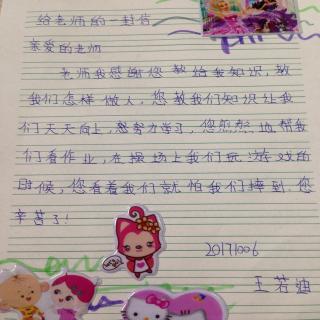 给老师的一封信
亲爱的老师
老师我感谢您教给我知识,教
我们怎样做人,您教我们知识让我
们天天向上,努力学习,您
地帮我
们看作业,在操场上我们玩游戏的
时候,您看着我们就怕我们摔到.您
辛苦了!
20171006
王若迪